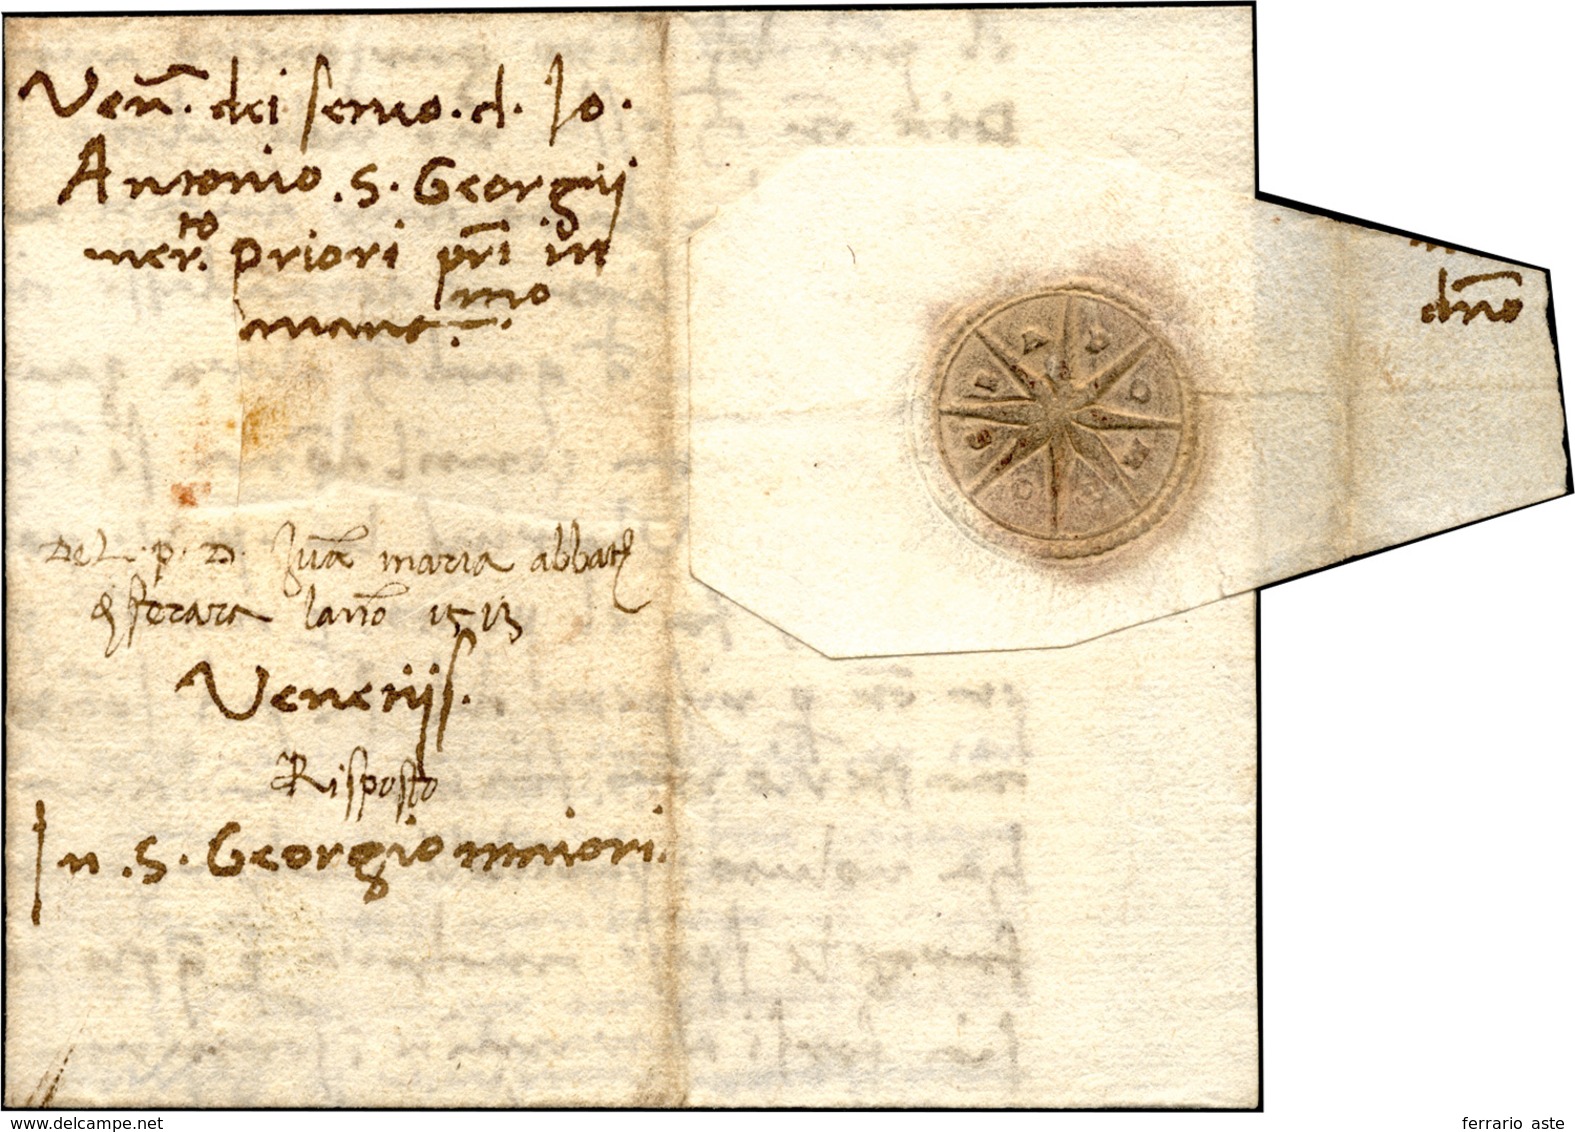 Ven̄. dei seruo. d. Io.
Antonio .S. Georgij
mer.to priori pr̄i in
mo
dn̄o
Del. p. D. Juā maria abbate
ferara lanno 1513
Venetijs.
Risposto
In .S. Georgio maiori.
www.delcampe.net
ferrario aste